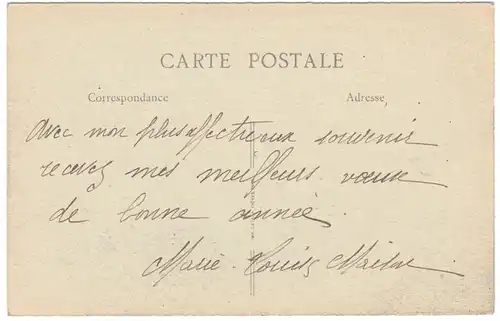 CARTE POSTALE
Correspondance
Adresse
Avec mon plus affectueux souvenir
recevez mes meilleurs voeux
de bonne année
Marie-Louise